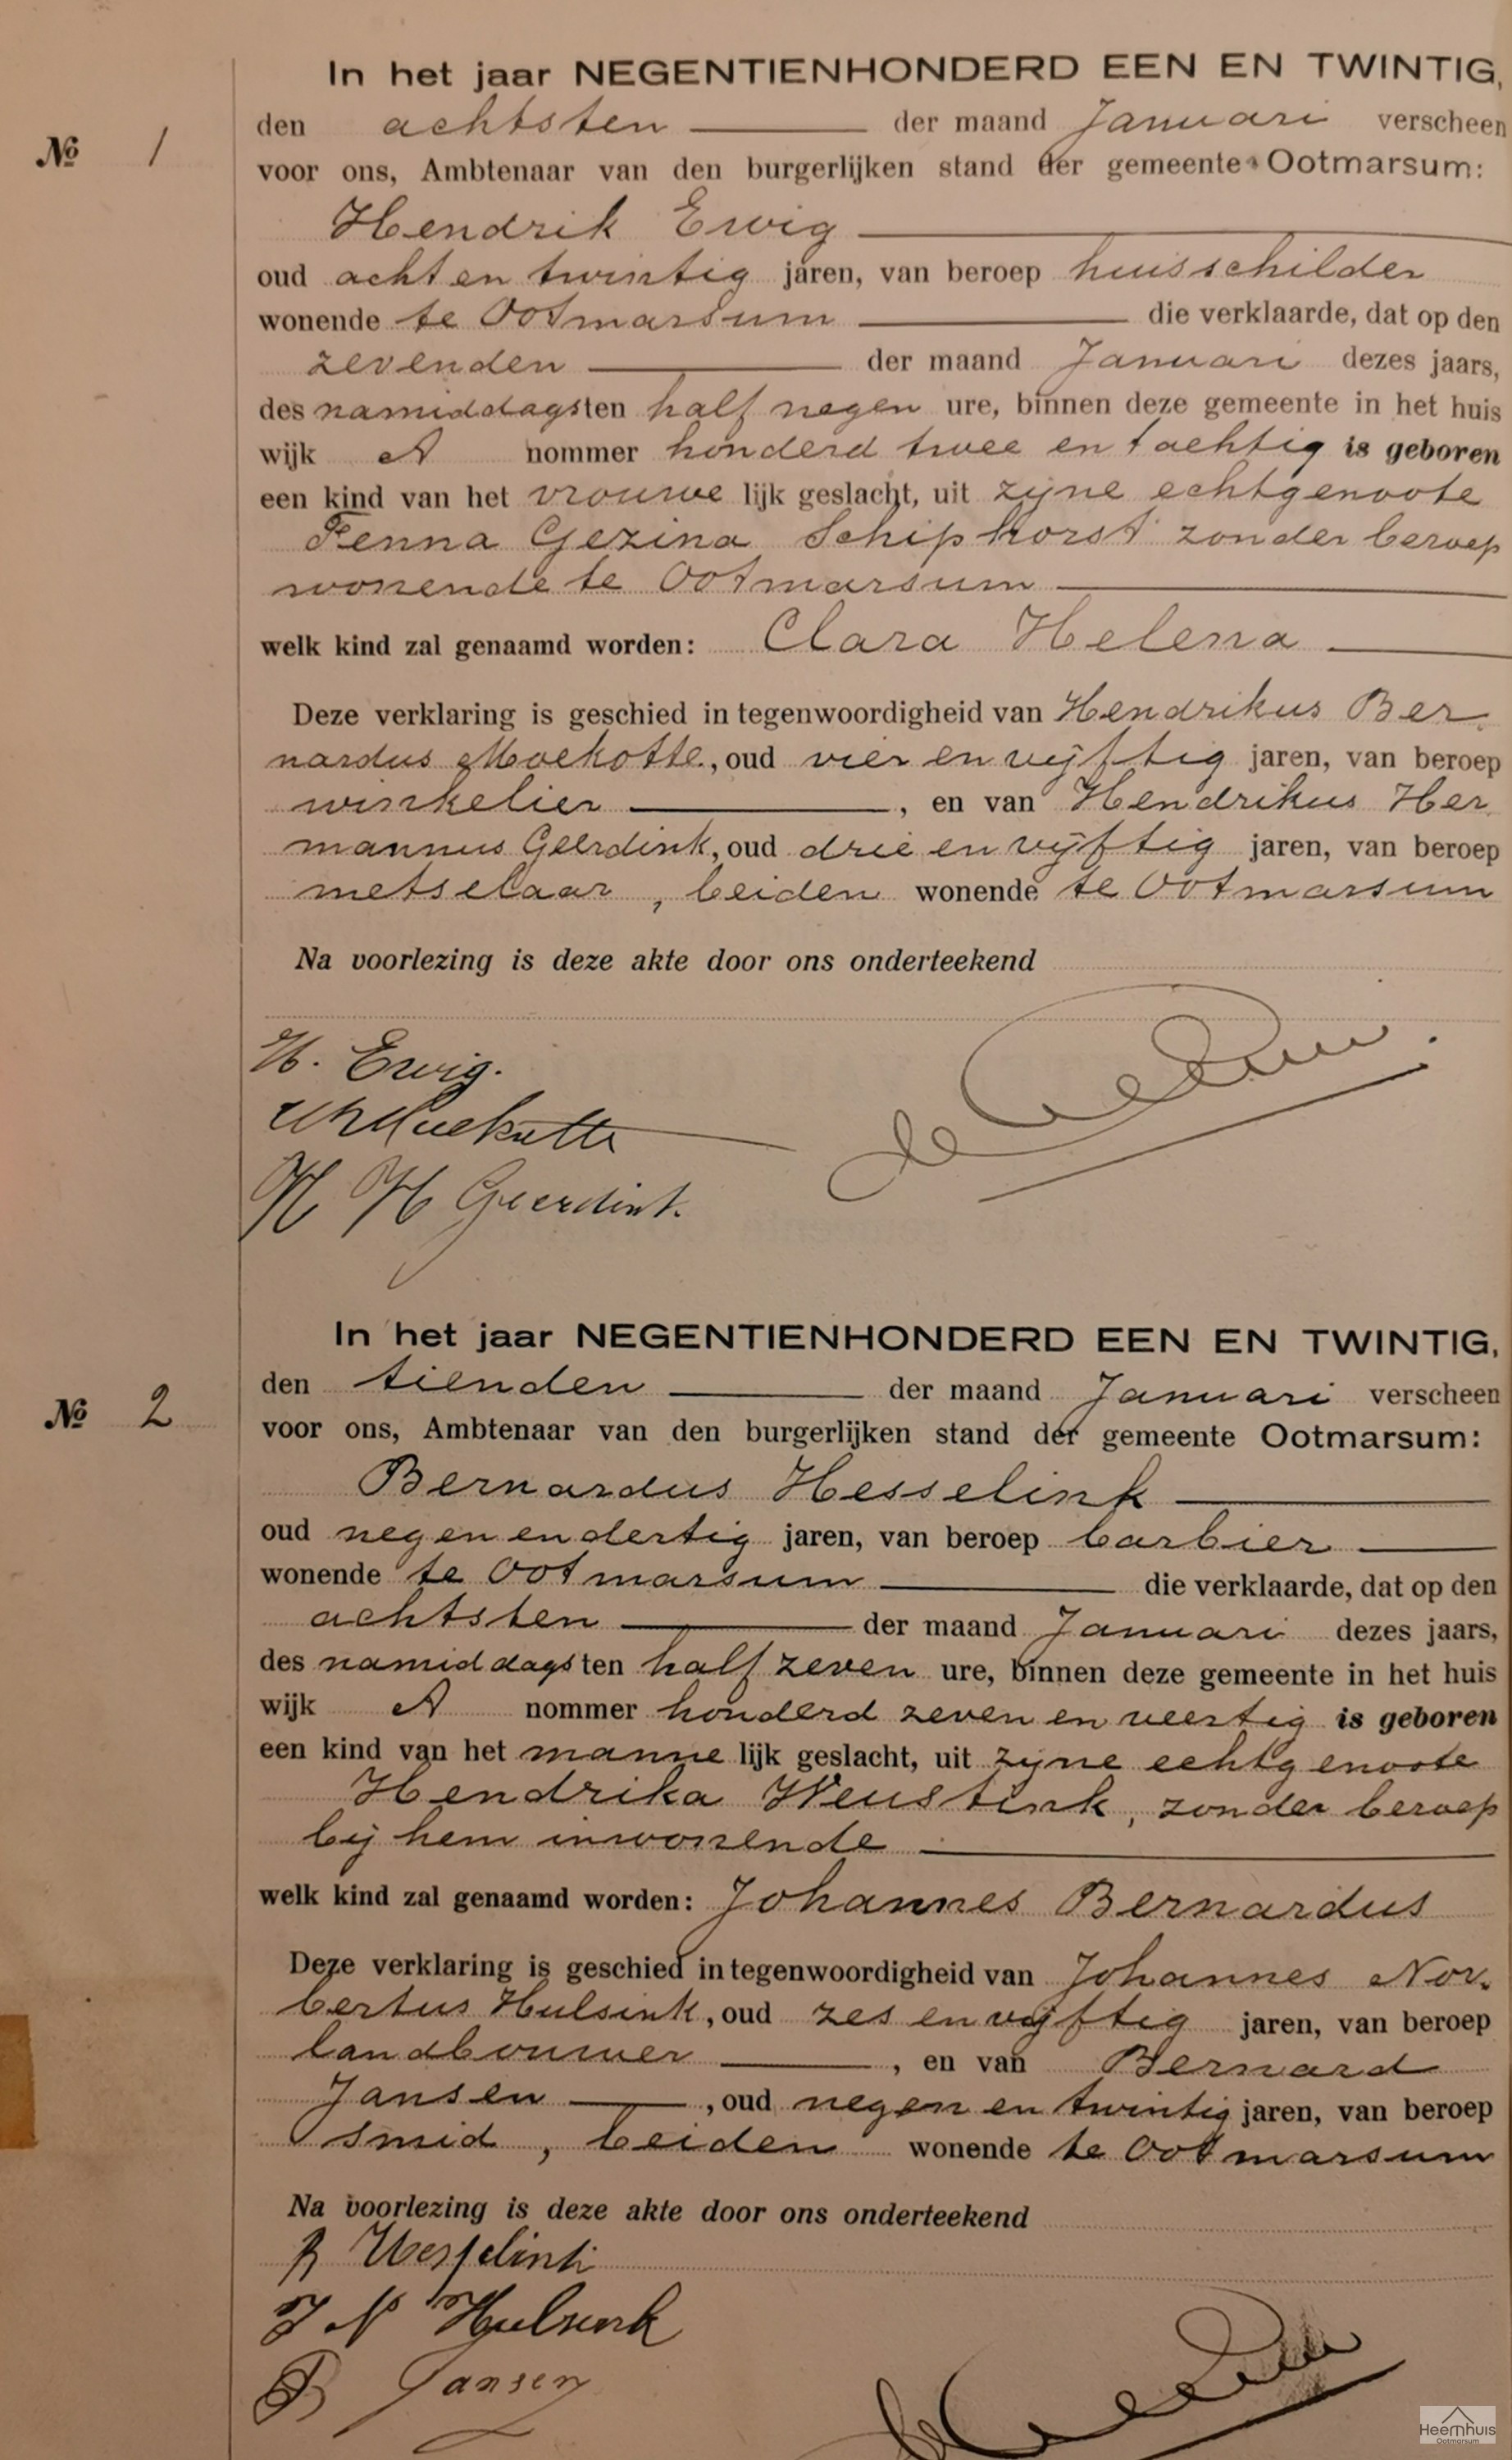 In het jaar NEGENTIENHONDERD EEN EN TWINTIG,
den achtsten der maand Januari verscheen
№ 1
voor ons, Ambtenaar van den burgerlijken stand der gemeente Ootmarsum:
Hendrik Ewig
oud acht en twintig jaren, van beroep huisschilder
wonende te Ootmarsum die verklaarde, dat op den
zevenden der maand Januari dezes jaars,
des namiddags ten half negen ure, binnen deze gemeente in het huis
wijk A nommer honderd twee en tachtig is geboren
een kind van het vrouwe lijk geslacht, uit zijne echtgenoote
Fenna Gezina Schiphorst zonder beroep
wonende te Ootmarsum
welk kind zal genaamd worden: Clara Helena
Deze verklaring is geschied in tegenwoordigheid van Hendrikus Ber-
nardus Moekotte, oud vier en vijftig jaren, van beroep
winkelier, en van Hendrikus Her
mannus Geerdink, oud drie en vijftig jaren, van beroep
metselaar, beiden wonende te Ootmarsum
Na voorlezing is deze akte door ons onderteekend
H. Ewig.
Moekotte
H H Geerdink.
In het jaar NEGENTIENHONDERD EEN EN TWINTIG,
den tienden der maand Januari verscheen
№ 2
voor ons, Ambtenaar van den burgerlijken stand der gemeente Ootmarsum:
Bernardus Hesselink
oud negen en dertig jaren, van beroep barbier
wonende te Ootmarsum die verklaarde, dat op den
achtsten der maand Januari dezes jaars,
des namiddags ten half zeven ure, binnen deze gemeente in het huis
wijk A nommer honderd zeven en veertig is geboren
een kind van het manne lijk geslacht, uit zijne echtgenoote
Hendrika Weustink, zonder beroep
bij hem inwonende
welk kind zal genaamd worden: Johannes Bernardus
Deze verklaring is geschied in tegenwoordigheid van Johannes Nor-
bertus Hulsink, oud zes en vijftig jaren, van beroep
landbouwer, en van Bernard
Jansen, oud negen en twintig jaren, van beroep
smid, beiden wonende te Ootmarsum
Na voorlezing is deze akte door ons onderteekend
B Hesselink
J N Hulsink
B Jansen
Heemhuis
Ootmarsum